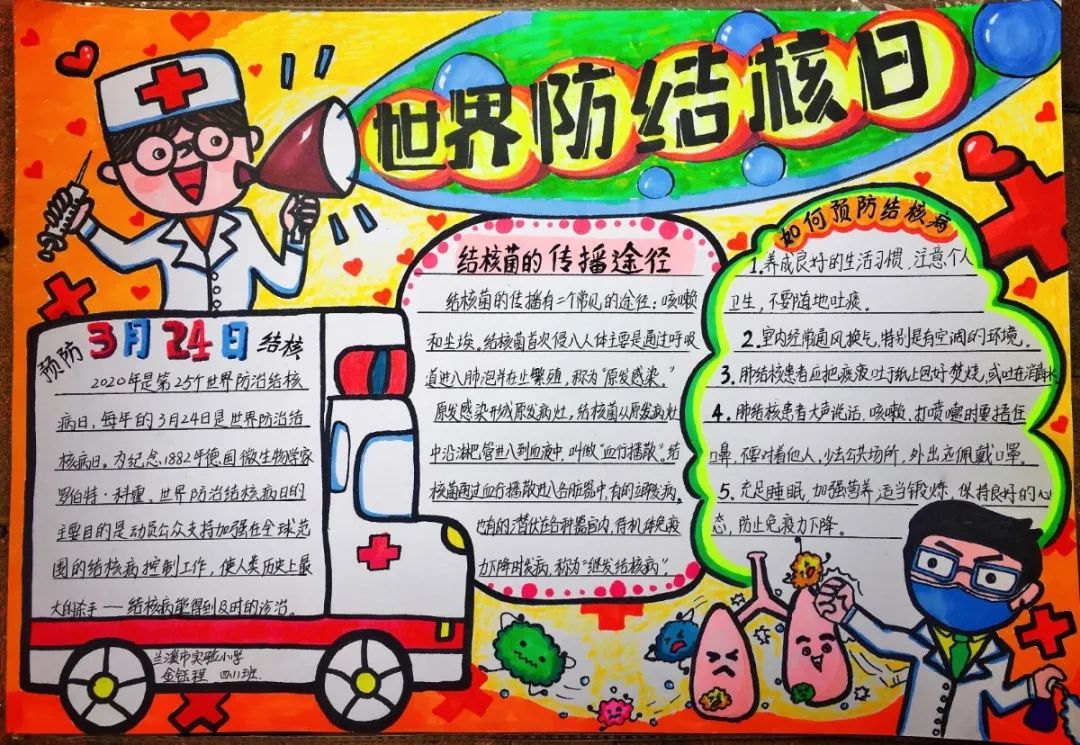 世界防结核日
预防3月24日结核
2020年是第25个世界防治结核
病日,每年的3月24日是世界防治结
核病日。为纪念1882年德国微生物学家
罗伯特·科霍、世界防治结核病日的
主要目的是动员公众支持加强在全球范
围的结核病控制工作,使人类历史上最
大的杀手——结核病能得到及时的诊治。
兰溪市实验小学
金钰程 四11班
结核菌的传播途径
结核菌的传播有二个常见的途径:咳嗽
和尘埃。结核菌首次侵入人体主要是通过呼吸
道进入肺泡并在此繁殖,称为“原发感染。”
原发感染形成原发病灶,结核菌从原发病灶
中沿淋巴管进入到血液中,叫做“血行播散”。结
核菌通过血行播散进入各脏器中,有的立即发病。
也有的潜伏在各种器官内,待机体免疫
力下降时发病,称为“继发结核病”。
如何预防结核病
1.养成良好的生活习惯,注意个人
卫生,不要随地吐痰。
2.室内经常通风换气,特别是有空调的环境。
3.肺结核患者应把痰液吐于纸上包好焚烧,或吐在消毒水
4.肺结核患者大声说话、咳嗽、打喷嚏时要捂住
口鼻,不要对着他人,少去公共场所,外出应佩戴口罩。
5.充足睡眠,加强营养,适当锻炼,保持良好的心
态,防止免疫力下降。